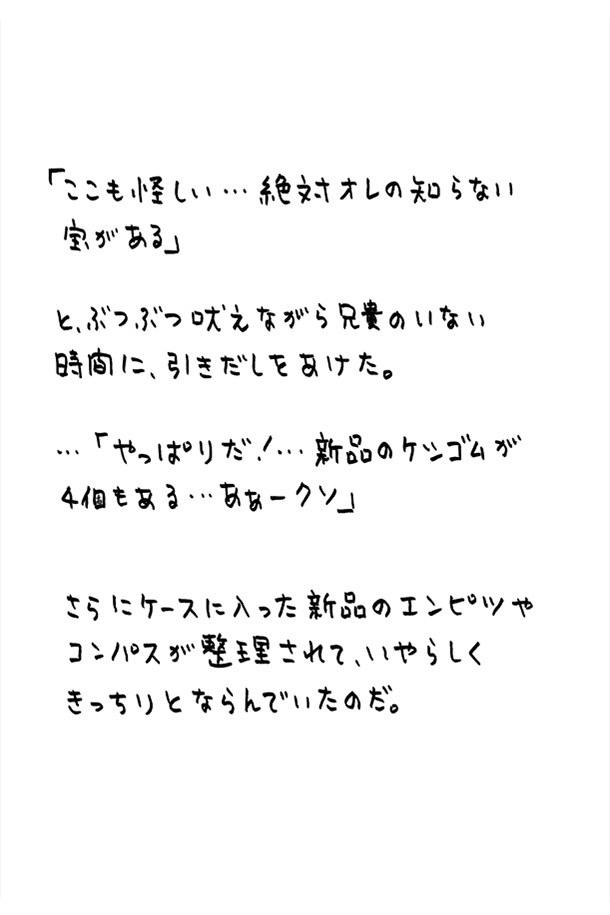 「ここも怪しい…絶対オレの知らない
宝がある」
と、ぶつぶつ吠えながら兄貴のいない
時間に、引きだしをあけた。
…「やっぱりだ!…新品のケシゴムが
4個もある…あぁークソ」
さらにケースに入った新品のエンピツや
コンパスが整理されて、いやらしく
きっちりとならんでいたのだ。